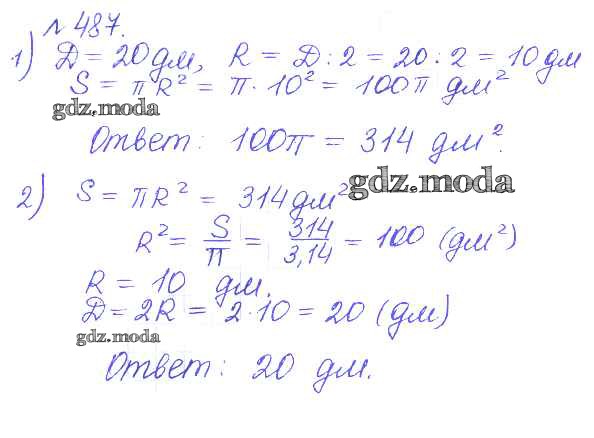 № 487.
1) D = 20 дм, R = D : 2 = 20 : 2 = 10 дм
S = πR² = π · 10² = 100π дм²
gdz.moda
Ответ: 100π = 314 дм².
2) S = πR² = 314 дм²
gdz.moda
R² = S/π = 314/3,14 = 100 (дм²)
R = 10 дм.
D = 2R = 2 · 10 = 20 (дм)
gdz.moda
Ответ: 20 дм.